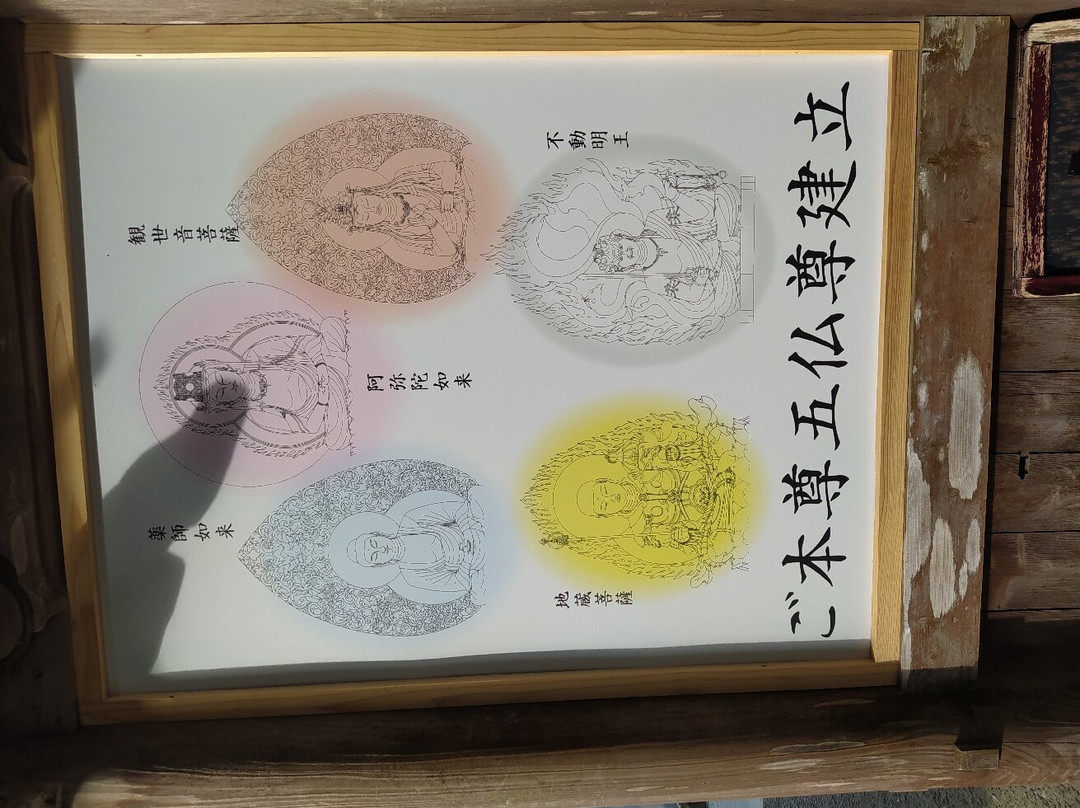 観世音菩薩
阿弥陀如来
薬師如来
不動明王
地蔵菩薩
ご本尊五仏尊建立